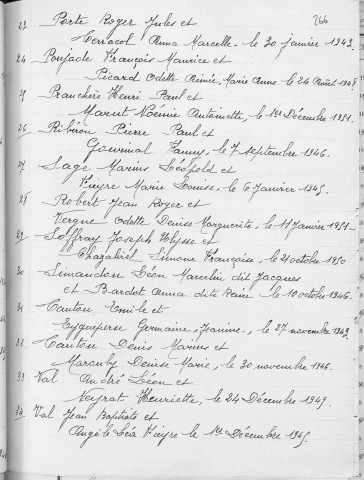 266
23 Porte Roger Jules et
Terracol Anna Marcelle, le 30 janvier 1943.
24 Poujade François Maurice et
Picard Odette Aimée, Marie Anna le 24 Août 1945
25 Pranchère Henri Paul et
Marut Noémie Antoinette, le 1er Décembre 1951.
26 Ribéron Pierre Paul et
Fanny, le 7 septembre 1946.
27 Sage Marius Léopold et
Vieyre Marie Louise, le 6 janvier 1945.
28 Robert Jean Roger et
Vergne Odette Denise Marguerite, le 11 janvier 1951.
29 Soffray Joseph Ulysse et
Simone Françoise, le 21 octobre 1950
30 Simandon Léon Marcelin dit Jacques
et Bardot Anna dite Reine le 10 octobre 1946.
31 Tanton Emile et
Eygueperse Germaine, Jeanine, le 27 novembre 1943.
32 Tanton Denis Marius et
Denise Marie, le 30 novembre 1946.
33 Val André Léon et
Neyrat Henriette, le 24 Décembre 1949.
34 Val Jean Baptiste et
Angèle Léa Vieyre le 1er Décembre 1945.